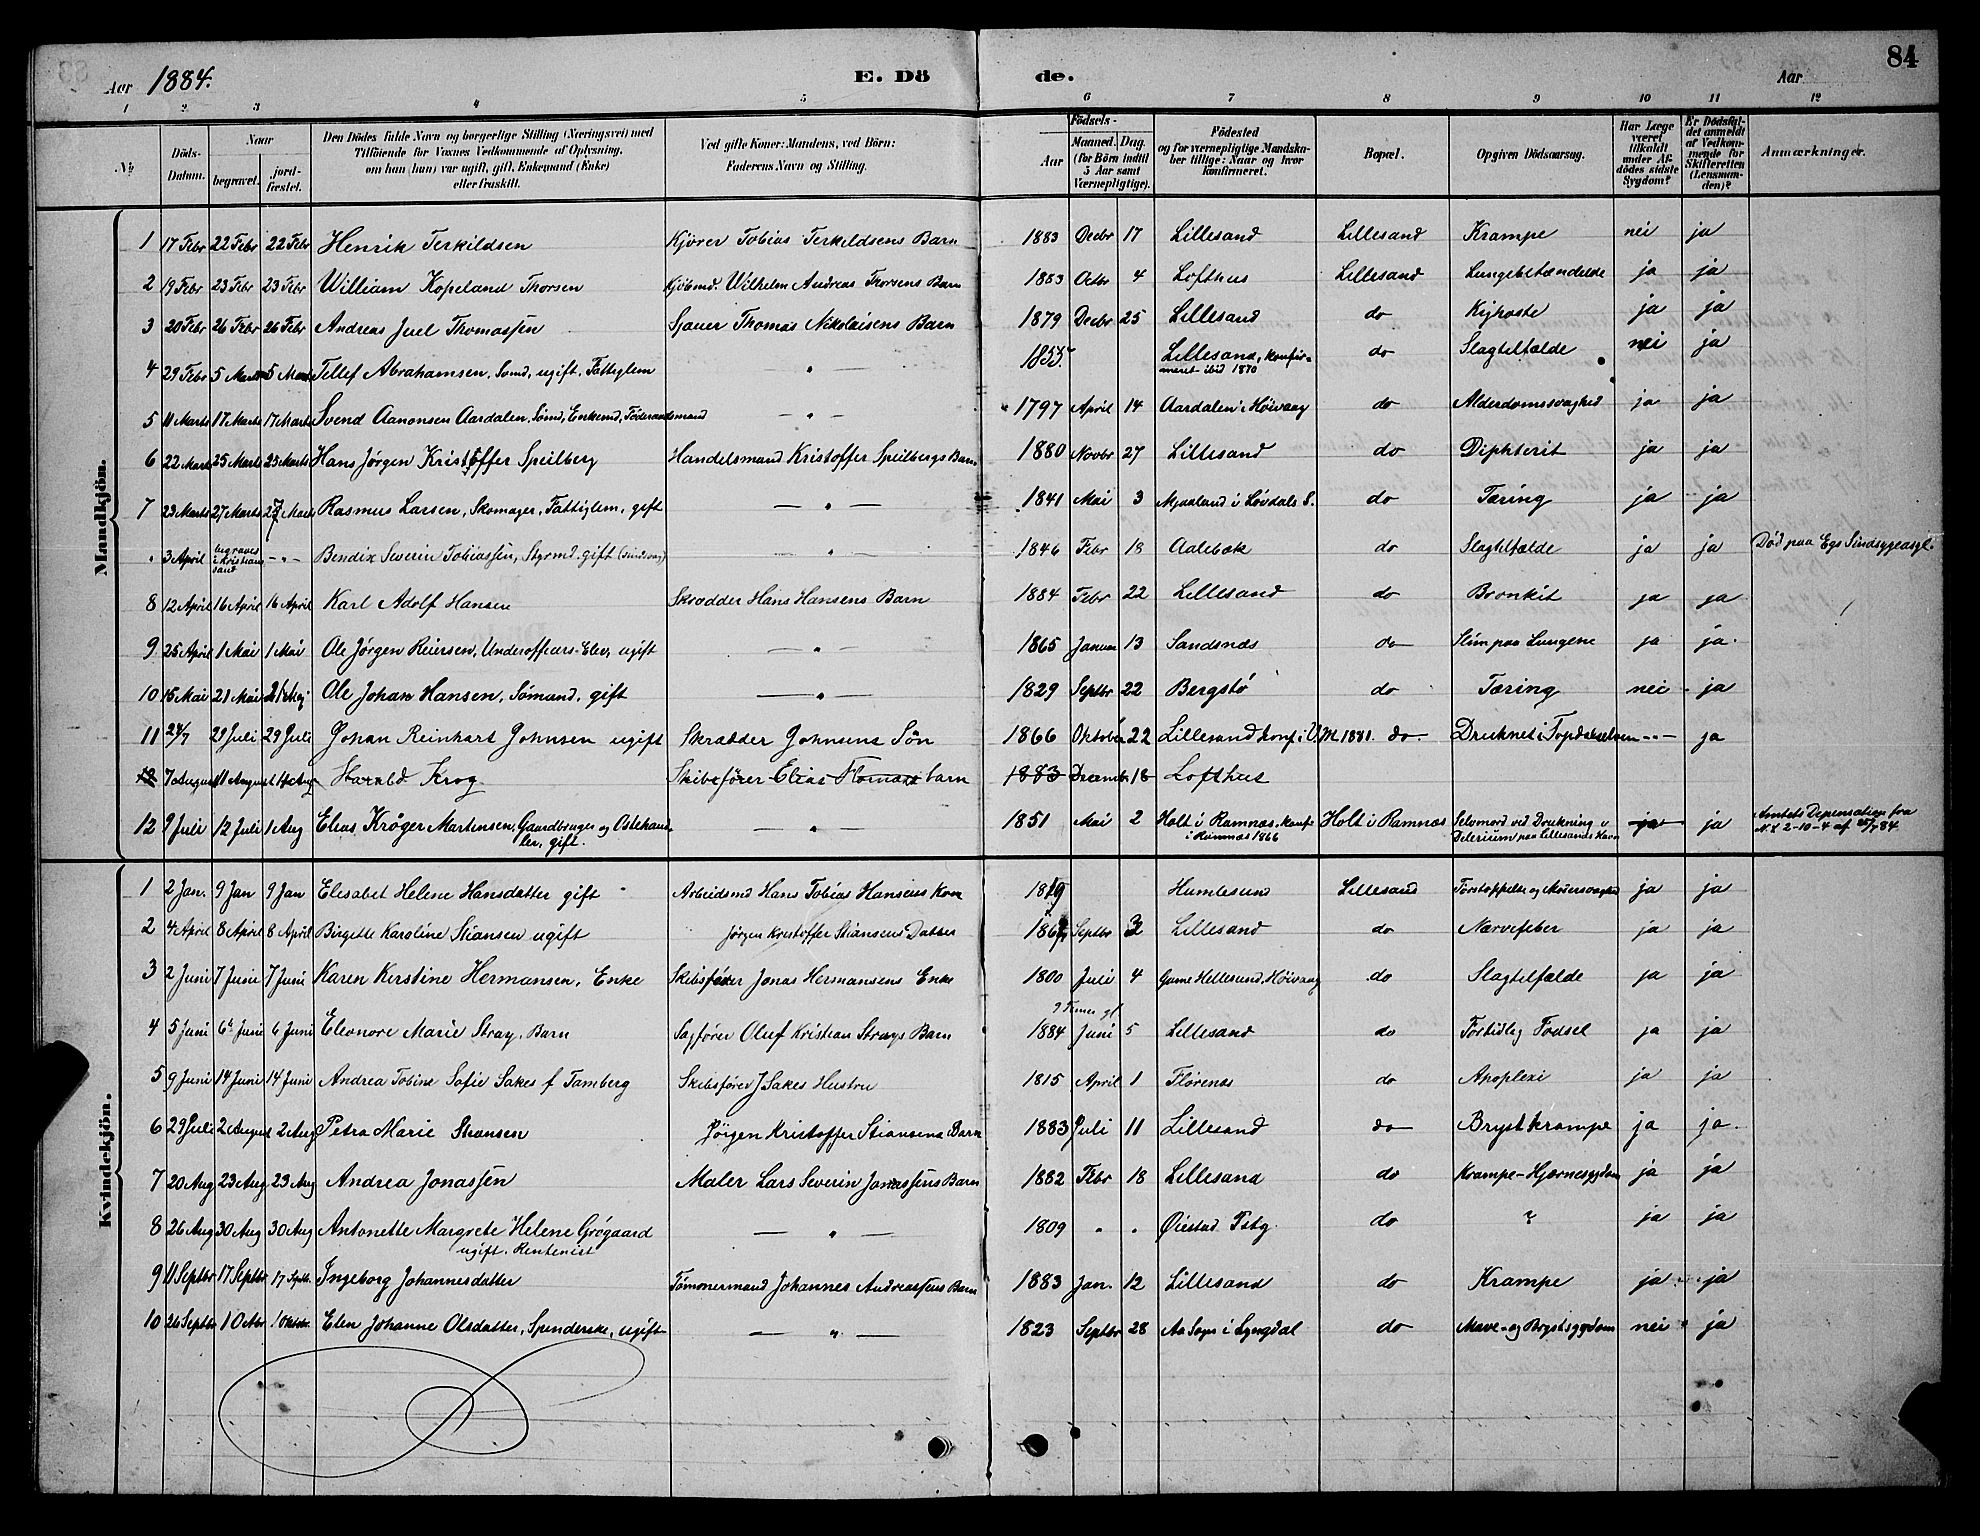 84
Aar 1884. E. Dö de. Aar
1 2 3 4 5 6 7 8 9 10 11 12
No Döds-Datum. Naar begravet. jord-fæstet. Den Dödes fulde Navn og borgerlige Stilling (Næringsvei) med Tilföiende for Voxnes Vedkommende af Oplysning, om han (hun) var ugift, gift, Enkemand (Enke) eller fraskilt. Ved gifte Koner: Mandens, ved Börn: Faderens Navn og Stilling. Födsels- Aar Maaned. Dag. (for Börn indtil 5 Aar samt Værnepligtige). Födested og for værnepligtige Mandskaber tillige: Naar og hvor konfirmeret. Bopæl. Opgiven Dödsaarsag. Har Læge været tilkaldt under Afdödes sidste Sygdom? Er Dödsfaldet anmeldt af Vedkommende for Skifteretten (Lensmanden)? Anmærkninger.
Mandkjön.
1 17 Febr 22 Febr 22 Febr Henrik Terkildsen Kjører Tobias Terkildsens Barn 1883 Decbr 17 Lillesand Lillesand Krampe nei ja
2 19 Febr 23 Febr 23 Febr William Kopeland Thorsen Kjöbmd. Wilhelm Andreas Thorsens Barn 1883 Octbr 4 Lofthus Lillesand Lungebetændelse ja ja
3 20 Febr 26 Febr 26 Febr Andreas Juel Thomassen Sjauer Thomas Nikolaisens Barn 1879 Decbr 25 Lillesand do Kighoste ja ja
4 29 Febr 5 Marts 5 Marts Tellef Abrahamsen, Sømd, ugift, Fattiglem — " — 1855 Lillesand, konfirmeret ibid 1870 do Slagtilfælde nei ja
5 11 Marts 17 Marts 17 Marts Svend Aanonsen Aardalen, Sømd, Enkemd, Føderaadsmand — " — 1797 April 14 Aardalen i Høivaag do Alderdomssvaghed ja ja
6 22 Marts 25 Marts 25 Marts Hans Jørgen Kristoffer Speilberg Handelsmand Kristoffer Speilbergs Barn 1880 Novbr 27 Lillesand do Diphterit ja ja
7 23 Marts 27 Marts 27 Marts Rasmus Larsen, Skomager, Fattiglem, gift — " — 1841 Mai 3 Mjaaland i Løvdals S. do Tæring ja ja
" 3 April begraves i Kristiansand — " — Bendix Severin Tobiassen, Styrmd. gift — " — 1846 Febr 18 Aalebæk do Slagtilfælde ja ja Død paa Egs Sindsygeasyl.
8 12 April 16 April 16 April Karl Adolf Hansen Skrædder Hans Hansens Barn 1884 Febr 22 Lillesand do Bronkit ja ja
9 25 April 1 Mai 1 Mai Ole Jørgen Reiersen, Underofficers-Elev, ugift — " — 1865 Januar 13 Sandsnæs do Slim paa Lungene ja ja.
10 15 Mai 21 Mai 21 Maj Ole Johan Hansen, Sømand, gift — " — 1829 Septbr 22 Bergstø do Tæring nei ja
11 24/7 29 Juli 29 Juli Johan Reinhart Johnsen ugift Skrædder Johnsens Søn 1866 Oktober 22 Lillesand konf. i V.M 1881. do Druknet i Topdalselven -"- ja
12 7 August 11 August 11 Aug Harald Krog Skibsfører Elias Flørnæs barn 1883 Decemb. 18 Lofthus
12 9 Juli 12 Juli 1 Aug Elias Krøger Martinsen, Gaardbruger og Ostehandler, gift. — " — 1851 Mai 2 Holt i Ramnæs, konf i Ramnæs 1866 Holt i Ramnæs Selvmord ved Drukning i Delerium paa Lillesands Havn ja ja Amtets Dispensation fra N.L 2-10-4 af 25/7 84
Kvindekjön.
1 2 Jan. 9 Jan 9 Jan Elisabet Helene Hansdatter gift Arbeidsmd Hans Tobias Hansens Kone 1819 Humlesund Lillesand ja ja
2 4 April 8 April 8 April Birgitte Karoline Stiansen ugift Jørgen Kristoffer Stiansens Datter Septbr Lillesand do Nervefeber ja ja
3 2 Juni 7 Juni 7 Juni Karen Kirstine Hermansen, Enke Skibsfører Jonas Hermansens Enke 1800 Juli 4 Gamle Hellesund, Høivaag do Slagtilfælde ja ja
4 5 Juni 6te Juni 6 Juni Eleonore Marie Stray, Barn Sagfører Oluf Kristian Strays Barn 9 Timer gl 1884 Juni 5 Lillesand do Fortidlig Fødsel ja ja
5 9 Juni 14 Juni 14 Juni Andrea Tobine Sofie Sakes f Tamberg Skibsfører J Sakes Hustru 1815 April 1 Flørenæs do Apoplexi ja ja
6 29 Juli 2 August 2 Aug Petra Marie Stiansen Jørgen Kristoffer Stiansens Barn 1883 Juli 11 Lillesand do Brystkrampe ja ja.
7 20 Aug 23 Aug 23 Aug Andrea Jonassen Maler Lars Severin Jonassens Barn 1882 Febr 18 Lillesand do Krampe-Hjernesygdom ja ja
8 26 Aug 30 Aug 30 Aug Antonette Margrete Helene Grøgaard ugift. Rentenist — " — 1809 " " Øiestad Pstg. do ? ja ja
9 11 Septbr 17 Septbr 17 Septb. Ingeborg Johannesdatter Tømmermand Johannes Andreassens Barn 1883 Jan. 12 Lillesand do Krampe ja ja
10 26 Septbr 1 Octbr 1 Oktobr. Elen Johanne Olsdatter, Spinderske, ugift — " — 1823 Septbr 28 Aa Sogn i Lyngdal do Mave- og Brystsygdom nei ja